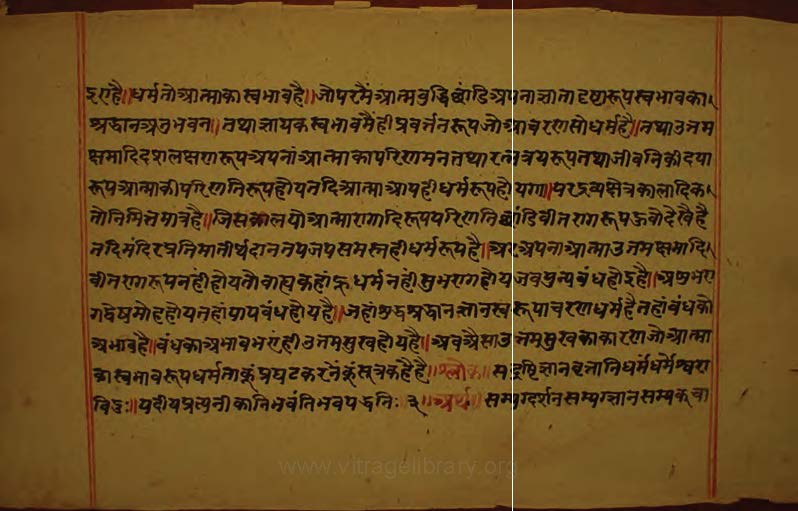 इएहै॥धर्मतोआत्माकास्वभावहै॥जोपरमैंआत्मबुद्धिछांडिअपनाज्ञातादृष्टारूपस्वभावका
श्रद्धानअनुभवन॥तथाज्ञायकस्वभावमैंहीप्रवर्त्तनरूपजोआचरणसोधर्महै॥तथाउत्तम
क्षमादिदशलक्षणरूपअपनांआत्माकापरिणमनतथारत्नत्रयरूपतथाजीवनिकीदया
रूपआत्माकीपरिणतिरूपहोयतदिआत्माआपहीधर्मरूपहोयगा॥परद्रव्यक्षेत्रकालादिक
तोनिमित्तमात्रहै॥जिसकालयोआत्मारागादिरूपपरिणतिछांडिवीतरागरूपऊवोदेखैहै
तदिमंदिरप्रतिमातीर्थदानतपजपसमस्तहीधर्मरूपहै॥अरअपनाआत्माउत्तमक्षमादि
वीतरागरूपनहींहोयतोबाह्यकहांऊधर्मनहींसुभरागहोयजबपुन्यबंधहोइहै॥अशुभरा
गद्वेषमोहहोयतहांपापबंधहोयहै॥जहांशुद्धश्रद्धानज्ञानस्वरूपाचरणधर्महैतहांबंधको
अभावहै॥बंधकाअभावभएंहीउत्तमसुखहोयहै॥अबऐसाउत्तमसुखकाकारणजोआत्मा
कास्वभावरूपधर्मताकूंप्रघटकरनेकूंसूत्रकहैहै॥श्लोक॥सदृष्टिज्ञानवृत्तानिधर्मंधर्मेश्वरा
विदुः॥यदीयप्रत्यनीकानिभवंतिभवपद्धतिः ३॥अर्थ॥सम्यग्दर्शनसम्यग्ज्ञानसम्यकचा
www.vitragelibrary.org